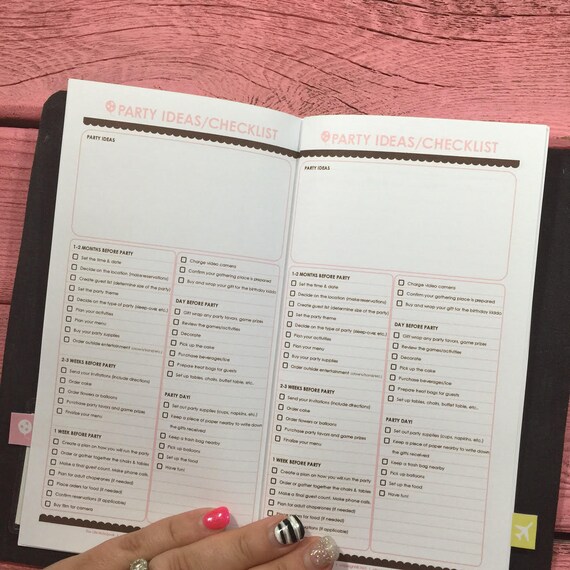 PARTY IDEAS/CHECKLIST
PARTY IDEAS
1-2 MONTHS BEFORE PARTY
Set the time & date
Decide on the location (make reservations)
Create guest list (determine size of the party)
Set the party theme
Decide on the type of party (sleep-over, etc.)
Plan your activities
Plan your menu
Buy your party supplies
Order outside entertainment
2-3 WEEKS BEFORE PARTY
Send your invitations (include directions)
Order cake
Order flowers or balloons
Purchase party favors and game prizes
Finalize your menu
1 WEEK BEFORE PARTY
Create a plan on how you will run the party
Order or gather together the chairs & tables
Make a final guest count. Make phone calls
Plan for adult chaperones (if needed)
Place orders for food (if needed)
Confirm reservations (if applicable)
Buy film for camera
Charge video camera
Confirm your gathering place is prepared
Buy and wrap your gift for the birthday kiddo
DAY BEFORE PARTY
Gift wrap any party favors, game prizes
Review the games/activities
Decorate
Pick up the cake
Purchase beverages/ice
Prepare treat bags for guests
Set up tables, chairs, buffet table, etc.
PARTY DAY!
Set out party supplies (cups, napkins, etc.)
Have a piece of paper nearby to write down
Keep a trash bag nearby
Pick up balloons
Set up the food
Have fun!
PARTY IDEAS/CHECKLIST
PARTY IDEAS
1-2 MONTHS BEFORE PARTY
Set the time & date
Decide on the location (make reservations)
Create guest list (determine size of the party)
Set the party theme
Decide on the type of party (sleep-over, etc.)
Plan your activities
Plan your menu
Buy your party supplies
Order outside entertainment
2-3 WEEKS BEFORE PARTY
Send your invitations (include directions)
Order cake
Order flowers or balloons
Purchase party favors and game prizes
Finalize your menu
1 WEEK BEFORE PARTY
Create a plan on how you will run the party
Order or gather together the chairs & tables
Make a final guest count. Make phone calls
Plan for adult chaperones (if needed)
for food (if needed)
(if applicable)
Charge video camera
Confirm your gathering place is prepared
Buy and wrap your gift for the birthday kiddo
DAY BEFORE PARTY
Gift wrap any party favors, game prizes
Review the games/activities
Decorate
Pick up the cake
Purchase beverages/ice
Prepare treat bags for guests
Set up tables, chairs, buffet table, etc.
PARTY DAY!
Set out party supplies (cups, napkins, etc.)
Keep a piece of paper nearby to write down
Keep a trash bag nearby
Pick up balloons
Set up the food
Have fun!